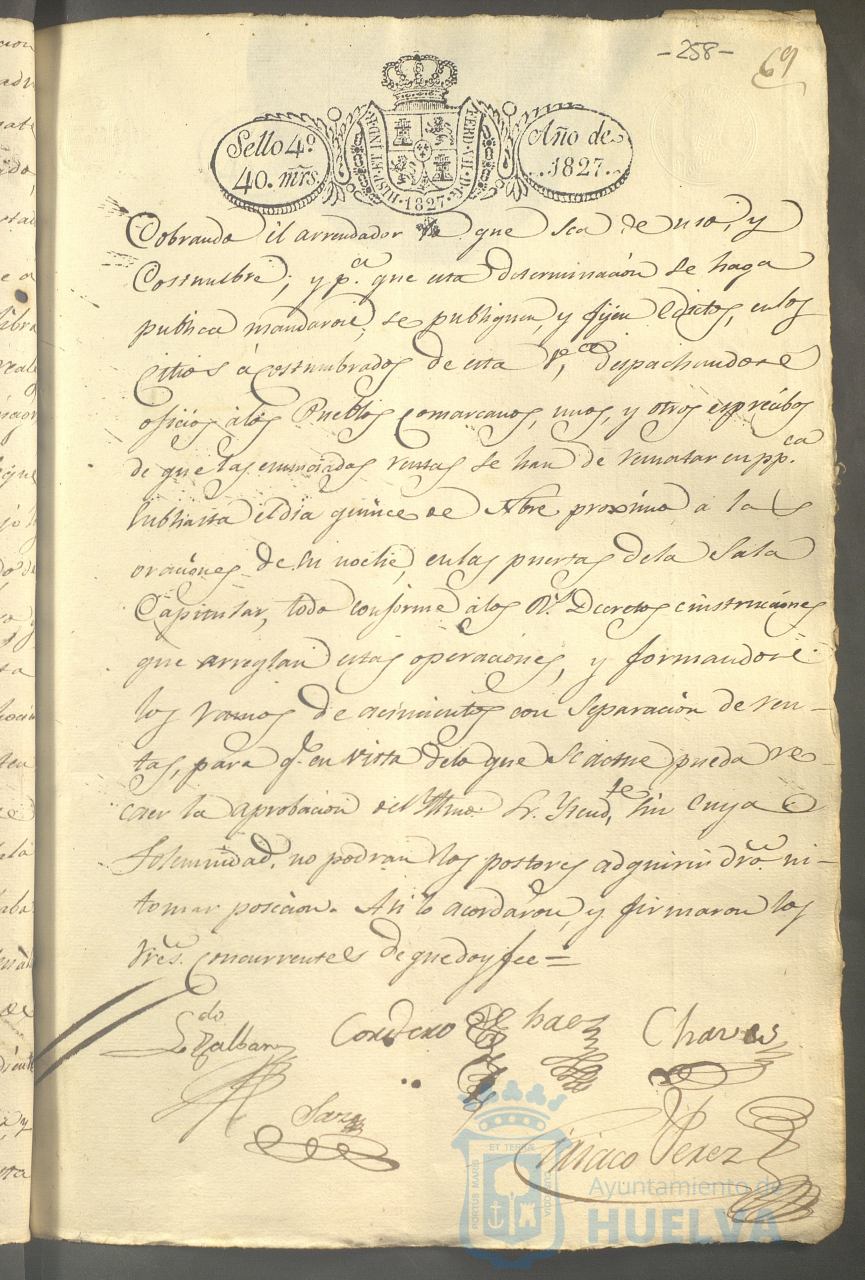 -258-
69
Sello 4º
40. mrs.
HISP. ET IND. R.
FERD. VII. D. G.
1827
Año de
1827.
Cobrando el arrendador lo que sea de uso, y
Costumbre; y pª que esta determinación se haga
publica mandaron, se publiquen, y fijen Edictos, en los
Citios acostumbrados de esta Vª, despachandose
oficios alos Pueblos comarcanos, unos, y otros expresibos
de que las enunciadas rentas se han de rematar en ppca
Subhasta el dia quince de Nbre proximo a las
oraciones de su noche, en las puertas dela Sala
Capitular, todo conforme alos Rs. Decretos e instrucciones
que arreglan estas operaciones, y formandose
los ramos de acimientos con Separacion de ren-
tas, para q. en vista delo que se actue pueda re-
caer la aprobacion del Illmo. Sr. Yntendte, sin cuya
Solemnidad, no podran los postores adquirir dro. ni
tomar posecion. Asi lo acordaron, y firmaron los
Sres. Concurrentes de que doy fee=
Ldo Zalbar
Cordero
Chaves
Ciriaco Perez
PORTUS MARIS ET TERRÆ CUSTODIA
Ayuntamiento de
HUELVA